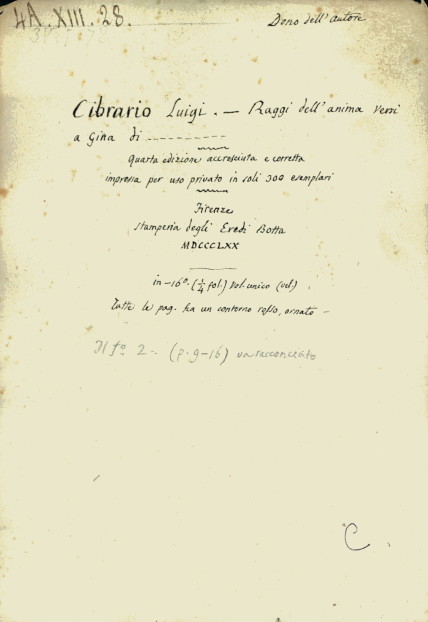 4A.XIII.28.
Dono dell'autore
Cibrario Luigi. — Raggi dell'anima versi
a Gina di ----------
Quarta edizione accresciuta e corretta
impressa per uso privato in soli 300 esemplari
Firenze
Stamperia degli Eredi Botta
MDCCCLXX
in-16º. (¼ fol.) vol. unico (vel)
Tutte le pag. ha un contorno rosso, ornato —
Il fº 2. (p. 9-16) va racconciato
C.